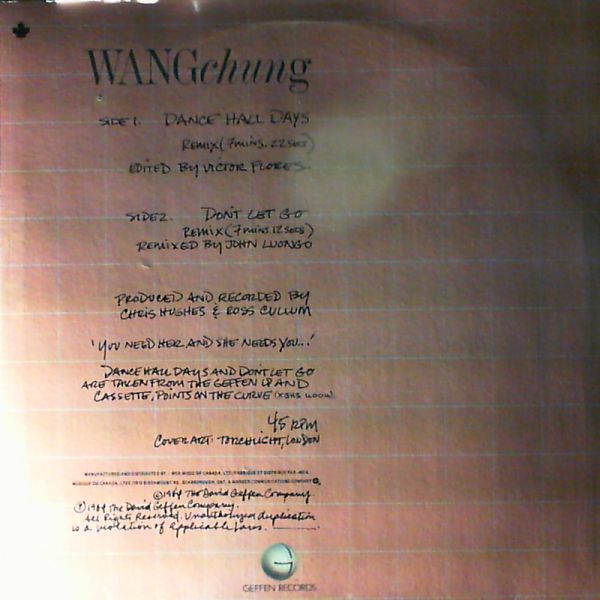 WANGchung
SIDE 1. DANCE HALL DAYS
REMIX (7 MINS. 22 SECS)
EDITED BY VICTOR FLORES.
SIDE 2. DON'T LET GO
REMIX (7 MINS 12 SECS)
REMIXED BY JOHN LUONGO
PRODUCED AND RECORDED BY
CHRIS HUGHES & ROSS CULLUM
'YOU NEED HER AND SHE NEEDS YOU...'
DANCE HALL DAYS AND DON'T LET GO
ARE TAKEN FROM THE GEFFEN LP AND
CASSETTE, POINTS ON THE CURVE
45 RPM
COVER ART: TORCHLIGHT, LONDON
MANUFACTURED AND DISTRIBUTED BY WEA MUSIC OF CANADA, LTD./FABRIQUÉ ET DISTRIBUÉ PAR
MUSIQUE DU CANADA, LTÉE. BIRCHMOUNT RD., SCARBOROUGH, ONT. A WARNER COMMUNICATIONS COMPANY
©1984 The David Geffen Company
℗1984 The David Geffen Company.
All Rights Reserved. Unauthorized duplication
is a violation of applicable laws.
G
GEFFEN RECORDS